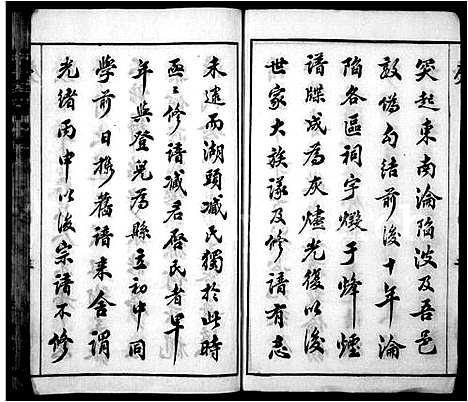 突起東南淪陷波及吾邑
敵偽勾結前後十年淪
陷各區祠宇燬于烽煙
譜牒成為灰燼光復以後
世家大族議及修譜有志
未逮而湖頭臧氏獨於此時
亟亟修譜臧君啓民者早
年與登兒為縣立初中同
學前日攜舊譜來舍謂
光緒丙申以後宗譜不修